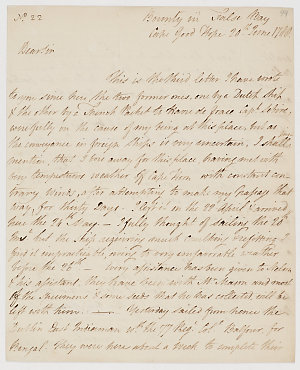 No. 22
Bounty in False Bay
Cape Good Hope 28th June 1788
Dear Sir
This is the third letter I have wrote
to you since here, the two former ones, one by a Dutch Ship
& the other by a French Packet to Havre de grace
fully on the cause of my being at this place, but as
the conveyance in foreign Ships is very uncertain, I shall
mention, that I bore away for this place having met with
very tempestuous weather off Cape Horn with constant con-
trary Winds, & for attempting to make my passage that
way, for thirty Days. I bore away on the 22 April & arrived
here the 24th May. I fully thought of sailing the 20th
but the Ship requiring much Caulking & refitting I
find it impracticable, owing to very unfavorable weather
before the 28th every assistance has been given to Nelson
& his assistant, they have been with Mr. Mason and most
of the Specimens & some seeds that he has collected will be
left with him. Yesterday sailed from hence the
Dublin East Indiaman with the 77 Regt. Col. Balfour for
Bengal. They were here about a Week to complete their